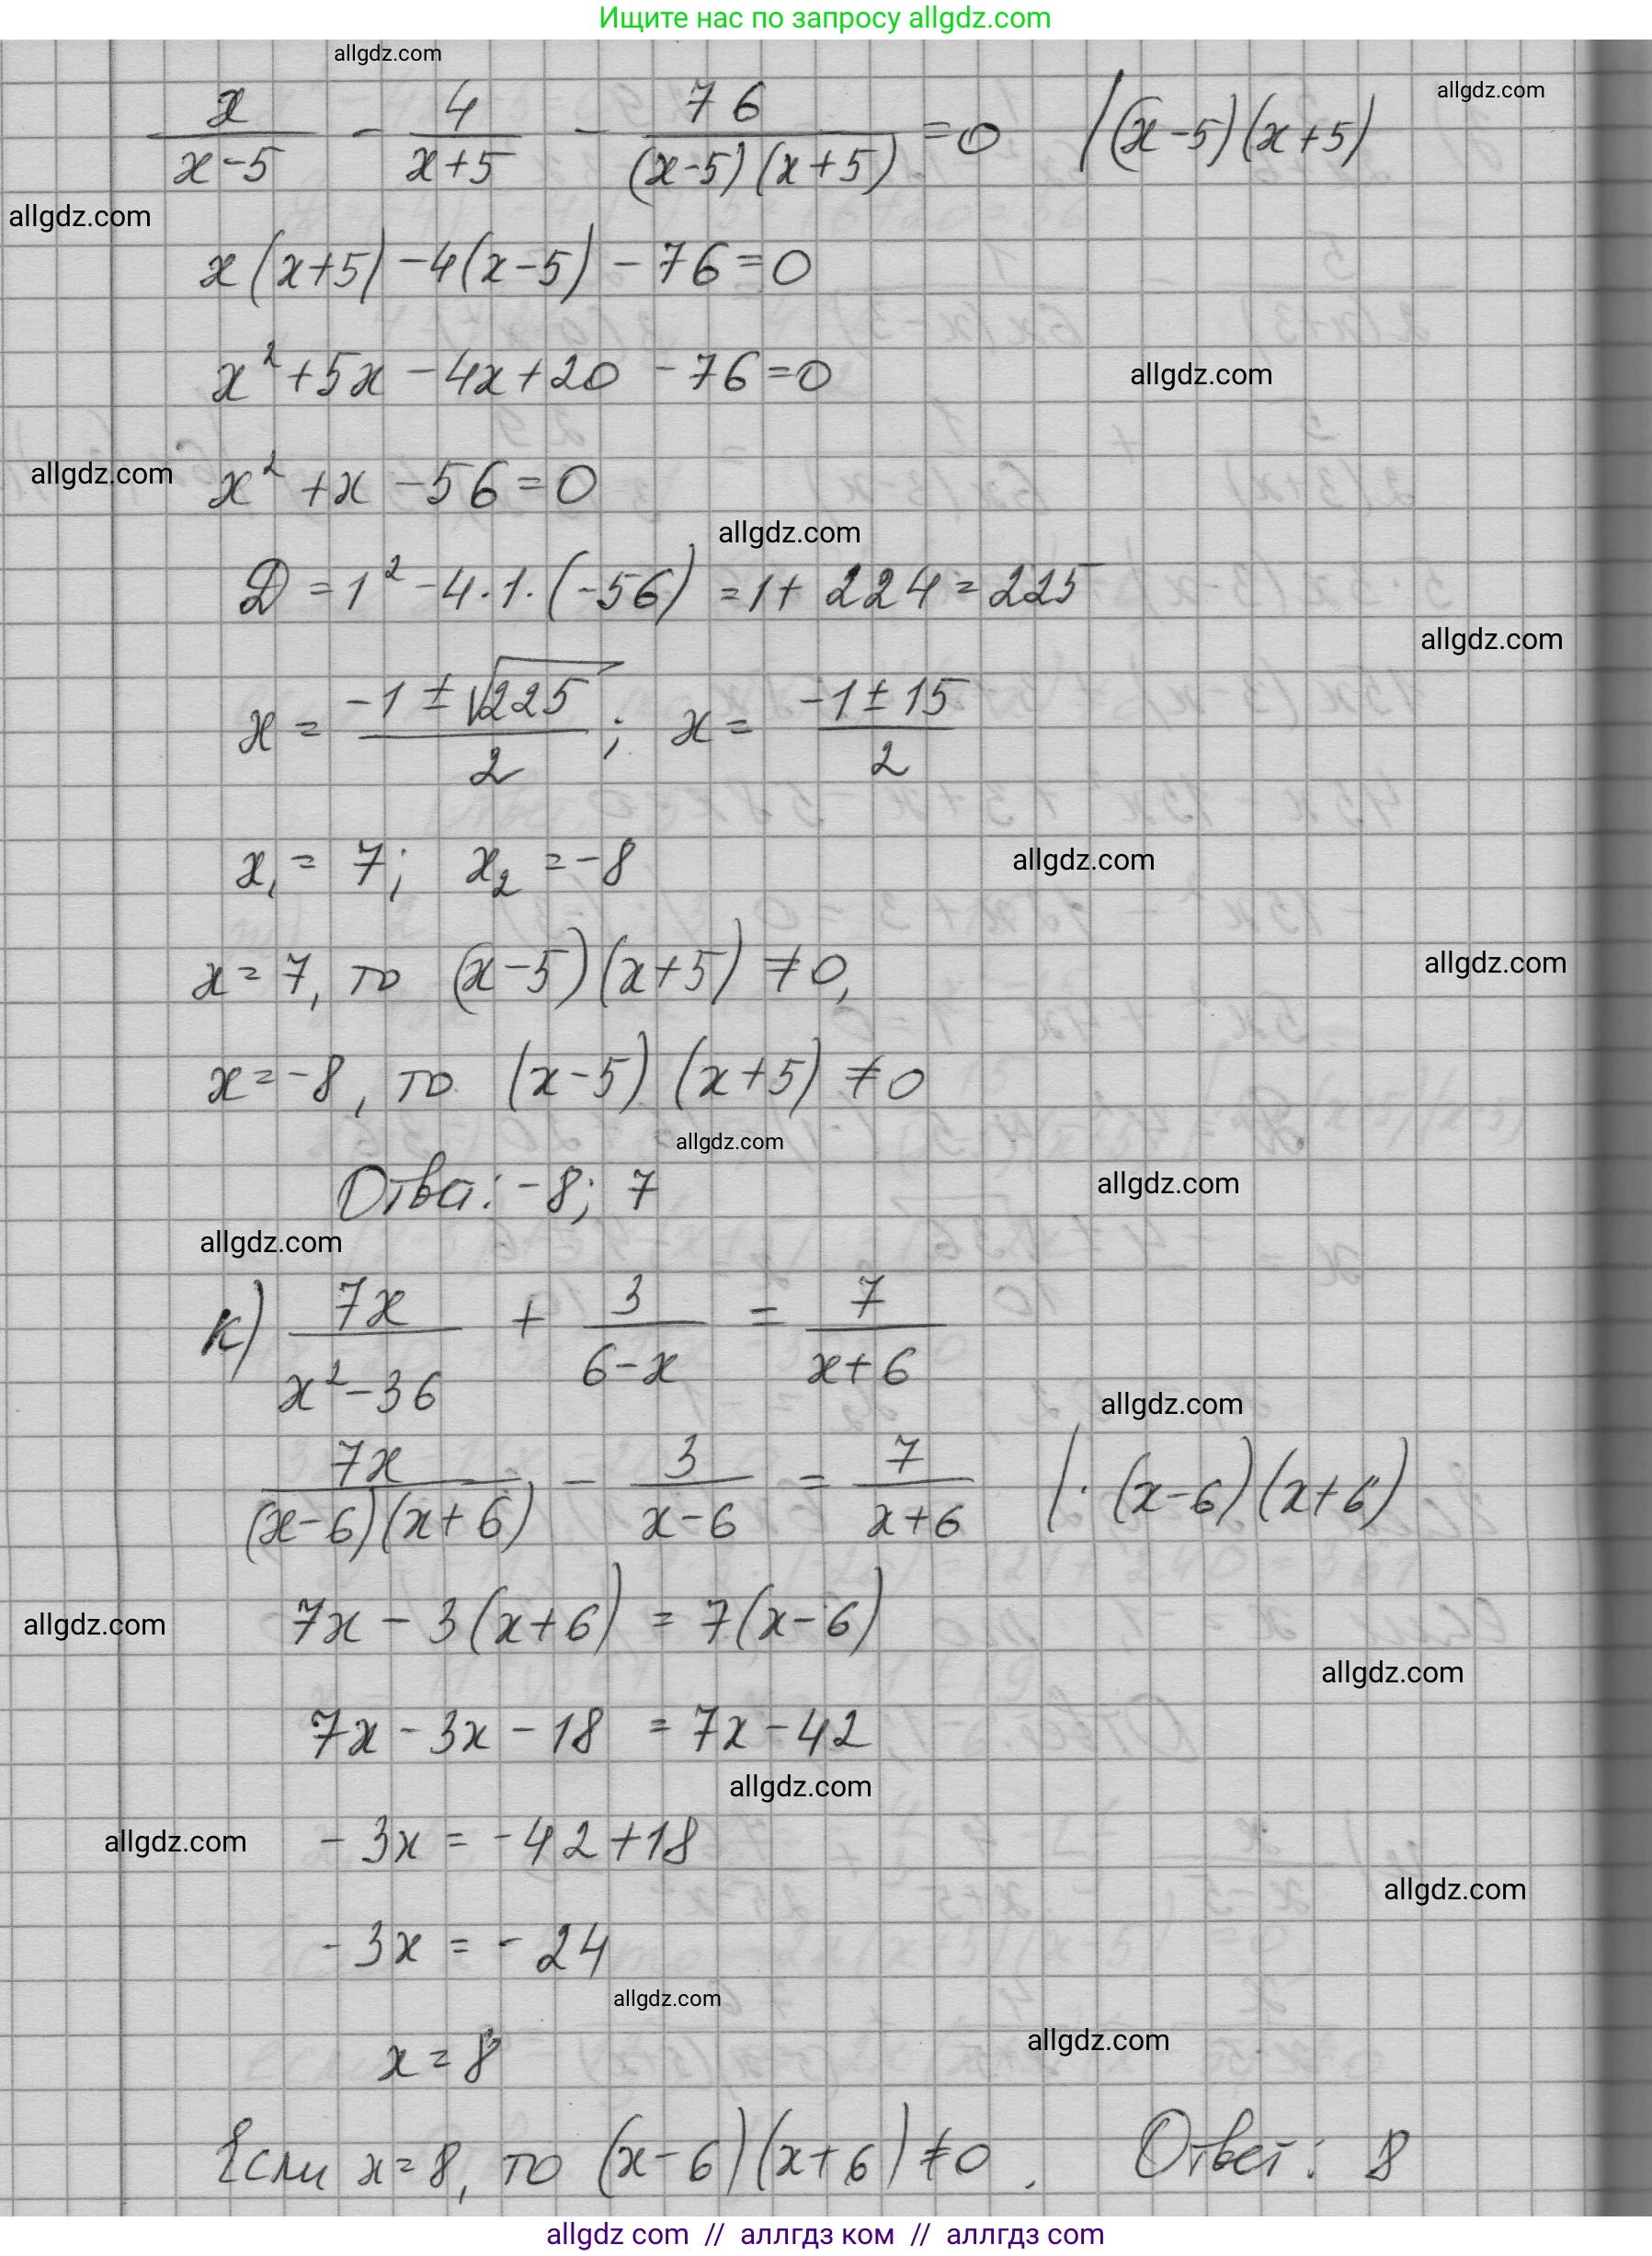 Ищите нас по запросу allgdz.com
allgdz.com
allgdz.com
x/(x-5) - 4/(x+5) - 76/((x-5)(x+5)) = 0 /(x-5)(x+5)
allgdz.com
x(x+5) - 4(x-5) - 76 = 0
x² + 5x - 4x + 20 - 76 = 0
allgdz.com
allgdz.com
x² + x - 56 = 0
allgdz.com
D = 1² - 4·1·(-56) = 1 + 224 = 225
allgdz.com
x = (-1 ± √225)/2 ; x = (-1 ± 15)/2
x₁ = 7; x₂ = -8
allgdz.com
x = 7, то (x-5)(x+5) ≠ 0,
allgdz.com
x = -8, то (x-5)(x+5) ≠ 0
allgdz.com
Ответ: -8; 7
allgdz.com
allgdz.com
к) 7x/(x²-36) + 3/(6-x) = 7/(x+6)
allgdz.com
7x/((x-6)(x+6)) - 3/(x-6) = 7/(x+6) /· (x-6)(x+6)
7x - 3(x+6) = 7(x-6)
allgdz.com
allgdz.com
7x - 3x - 18 = 7x - 42
allgdz.com
- 3x = -42 + 18
allgdz.com
allgdz.com
- 3x = - 24
allgdz.com
allgdz.com
x = 8
Если x = 8, то (x-6)(x+6) ≠ 0. Ответ: 8
allgdz com // аллгдз ком // аллгтдз com